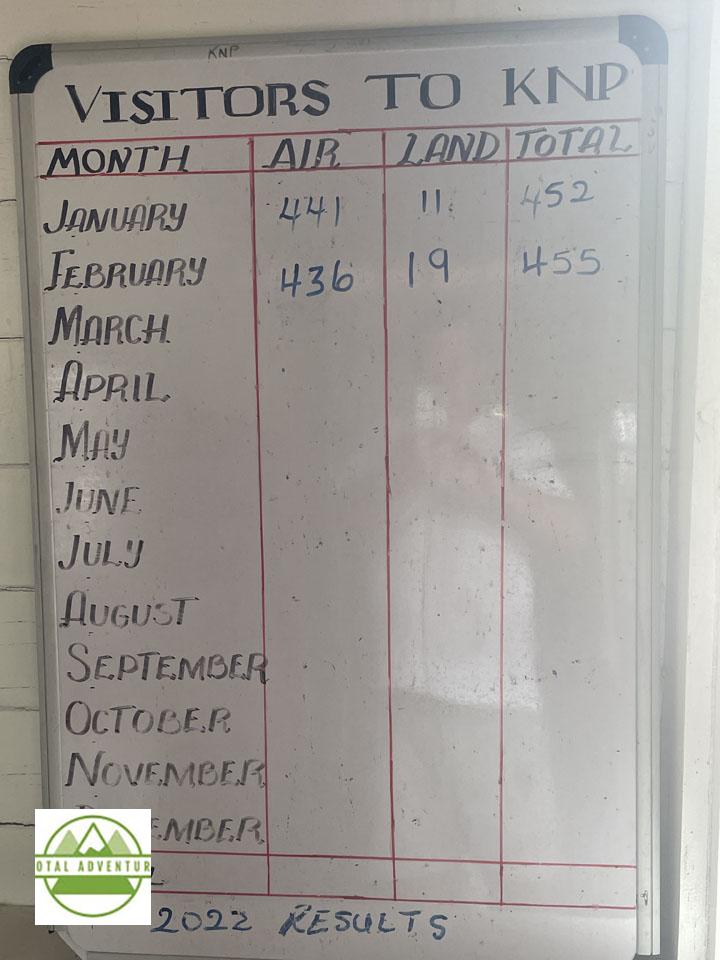 KNP
VISITORS TO KNP
MONTH AIR LAND TOTAL
JANUARY 441 11 452
FEBRUARY 436 19 455
MARCH
APRIL
MAY
JUNE
JULY
AUGUST
SEPTEMBER
OCTOBER
NOVEMBER
EMBER
OTAL ADVENTUR
L
2022 RESULTS